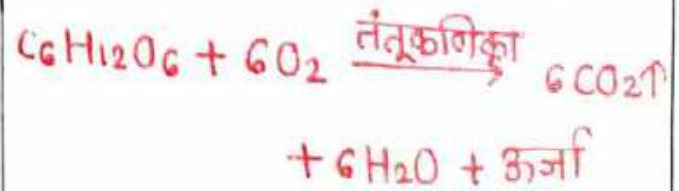 C6H12O6 + 6O2 तंतूकणिका → 6CO2↑
+ 6H2O + ऊर्जा